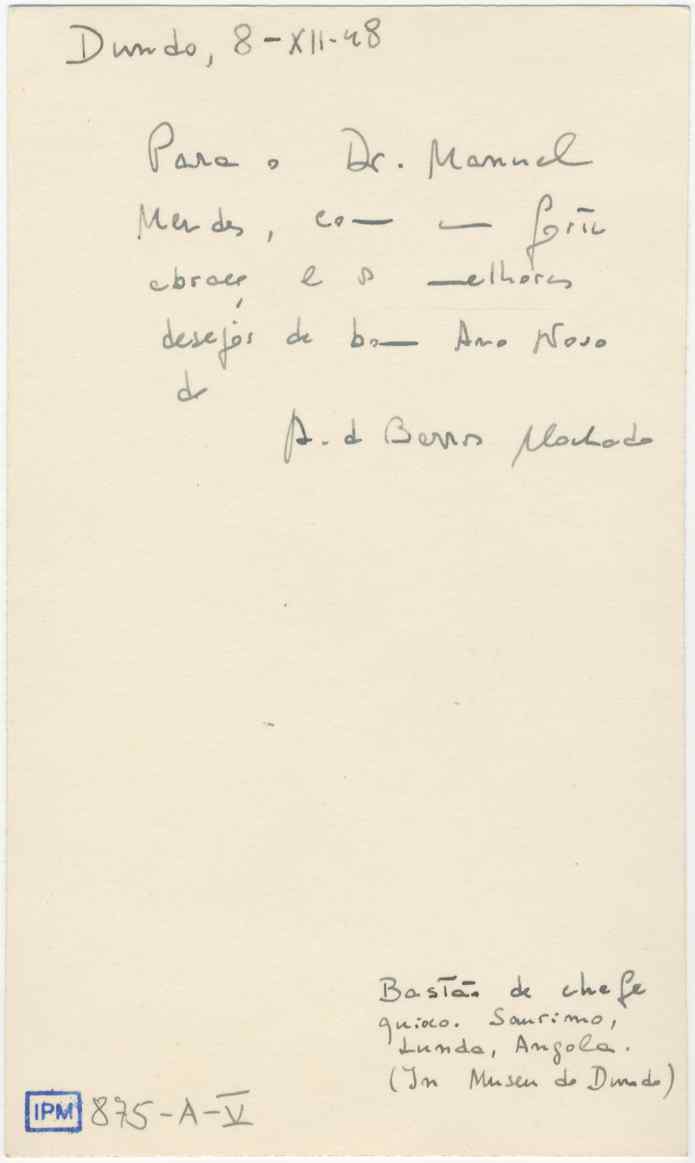 Dundo, 8-XII-48
Para o Dr. Manuel
Mendes, com um forte
abraço e os melhores
desejos de bom Ano Novo
de
A. de Barros Machado
Bastão de chefe
quioco. Saurimo,
Lunda, Angola.
(In Museu do Dundo)
IPM 875-A-V